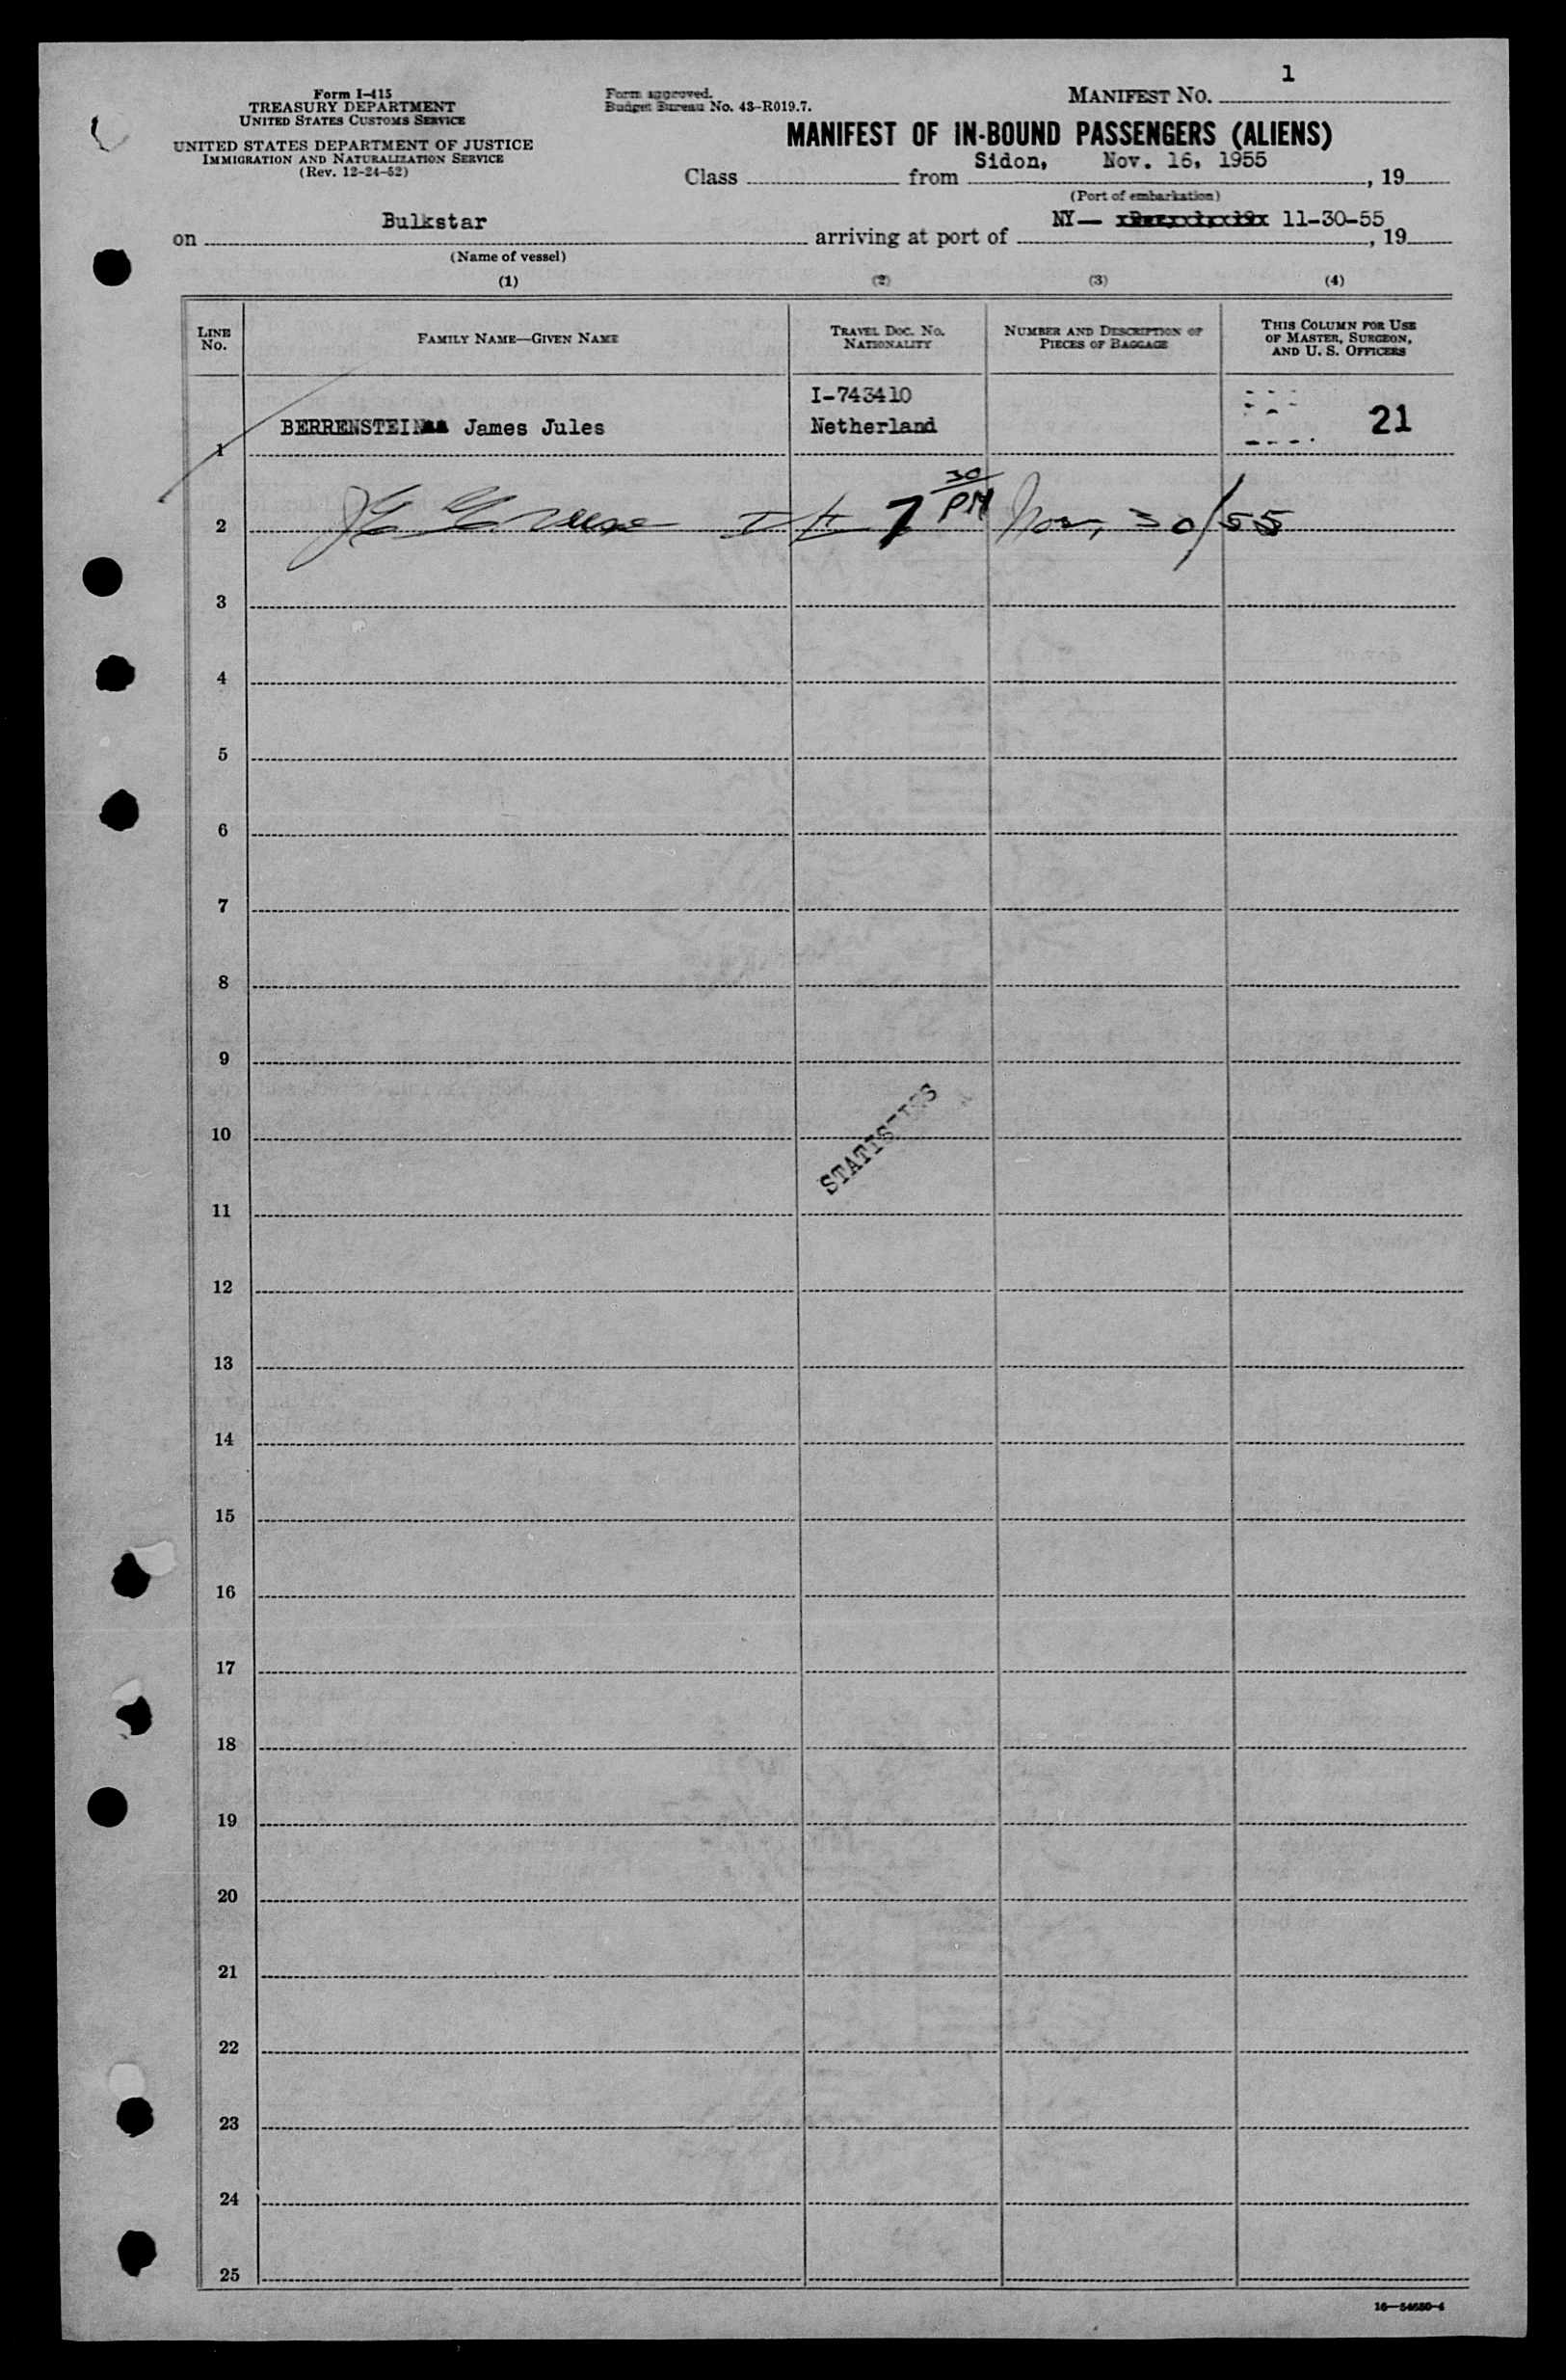 1
Form I-415
TREASURY DEPARTMENT
UNITED STATES CUSTOMS SERVICE
UNITED STATES DEPARTMENT OF JUSTICE
IMMIGRATION AND NATURALIZATION SERVICE
(Rev. 12-24-52)
Form approved.
Budget Bureau No. 43-R019.7.
MANIFEST NO.
MANIFEST OF IN-BOUND PASSENGERS (ALIENS)
Sidon, Nov. 16, 1955
Class from , 19
(Port of embarkation)
Bulkstar NY— 11-30-55
on arriving at port of , 19
(Name of vessel)
(1) (2) (3) (4)
LINE No. FAMILY NAME—GIVEN NAME TRAVEL DOC. NO. NATIONALITY NUMBER AND DESCRIPTION OF PIECES OF BAGGAGE THIS COLUMN FOR USE OF MASTER, SURGEON, AND U. S. OFFICERS
I-743410
1 BERRENSTEIN James Jules Netherland 21
2 7 30 PM Nov, 30/55
3
4
5
6
7
8
9
10
STATISTICS
11
12
13
14
15
16
17
18
19
20
21
22
23
24
25